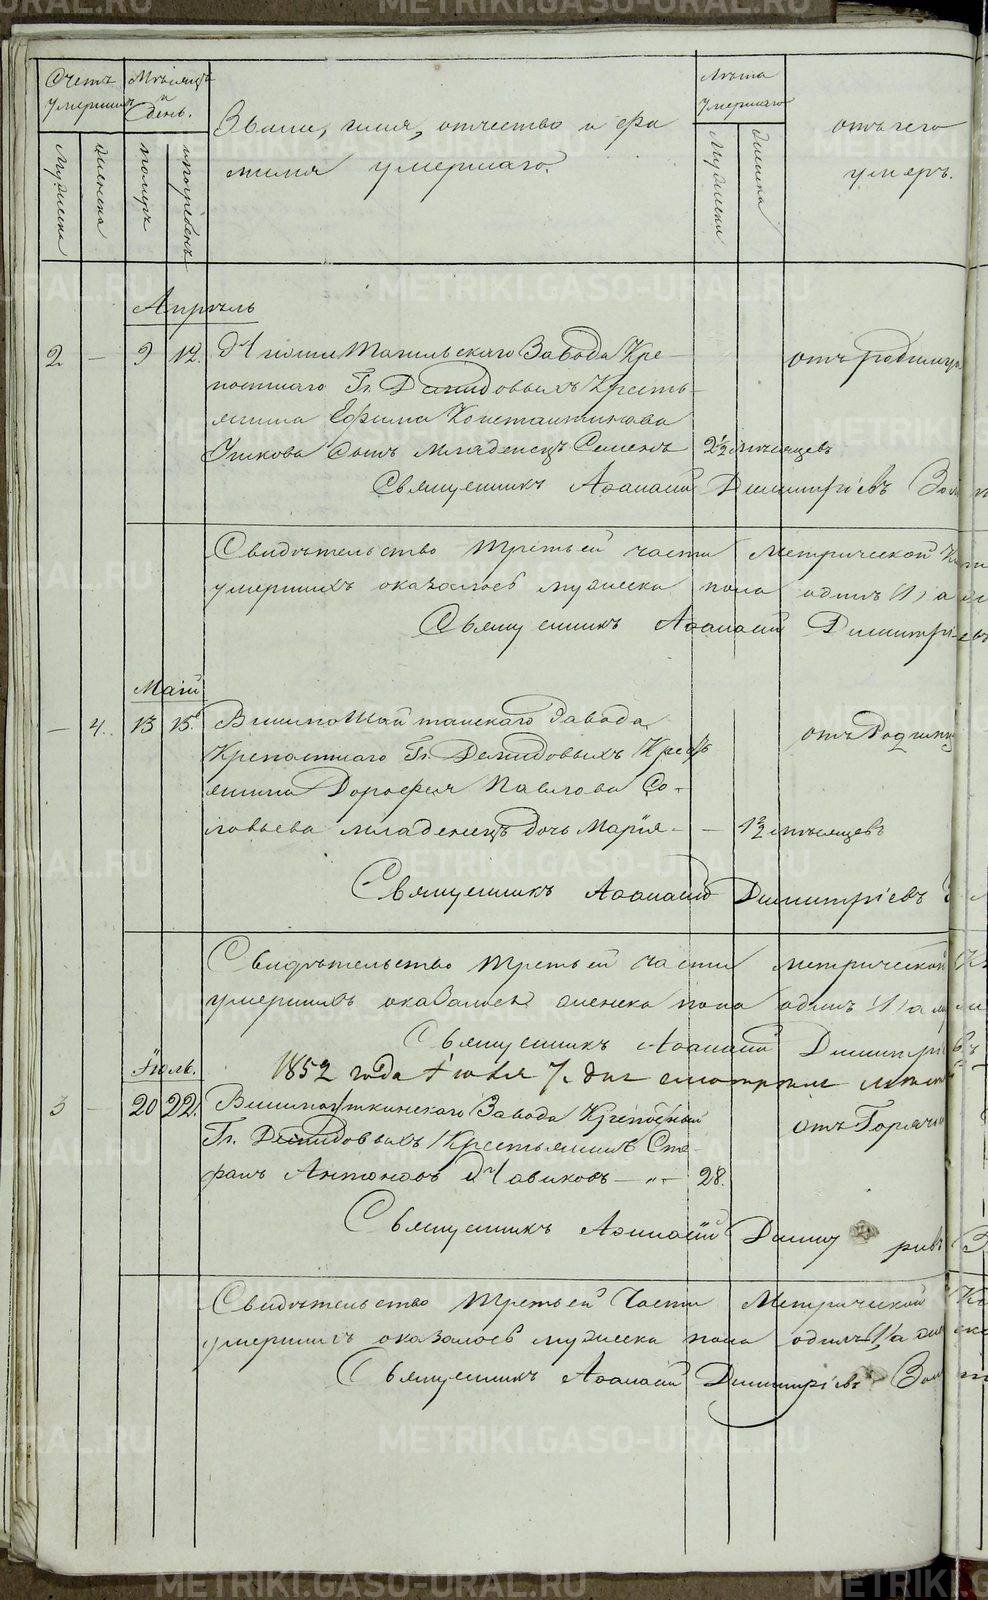 METRIKI.GASO-URAL.RU
Счетъ умершихъ
Мѣсяцъ и день.
Званіе, имя, отчество и фа
милія умершаго.
Лѣта умершаго
отъ чего
умеръ.
Мужеска
женска
померъ
погребенъ
Мужеска
женска
Апрѣль
2 — 9 12. Нижнотагильскаго Завода Кре-
постнаго Гг. Демидовыхъ Кресть-
янина Ефима Константинова
Ушкова сынъ младенецъ Семенъ 2½ мѣсяцевъ
отъ родимца
Священникъ Аѳанасій Димитріевъ
Свидѣтельство третьей части Метрической
умершихъ оказалось мужеска пола одинъ (1) а
Священникъ Аѳанасій Димитріевъ
Маій
— 4. 13 15. Вишмошайтанскаго Завода
Крепостнаго Гг. Демидовыхъ Кресть
янина Дорофея Павлова Со-
ловьева младенецъ дочь Марія — — 1½ мѣсяцевъ
отъ Родимца
Священникъ Аѳанасій Димитріевъ
Свидѣтельство третьей части метрической
умершихъ оказалось женска пола одинъ (1) а
Священникъ Аѳанасій Димитріевъ
1852 года Іюля 7. дня
Іюль.
3 — 20 22. Завода Крепостный
Гг. Демидовыхъ Крестьянинъ Сте-
фанъ Антоновъ Новиковъ — „ — 28.
отъ Горячки
Священникъ Аѳанасій
Свидѣтельство третьей Части Метрической
умершихъ оказалось мужеска пола одинъ (1) а
Священникъ Аѳанасій Димитріевъ